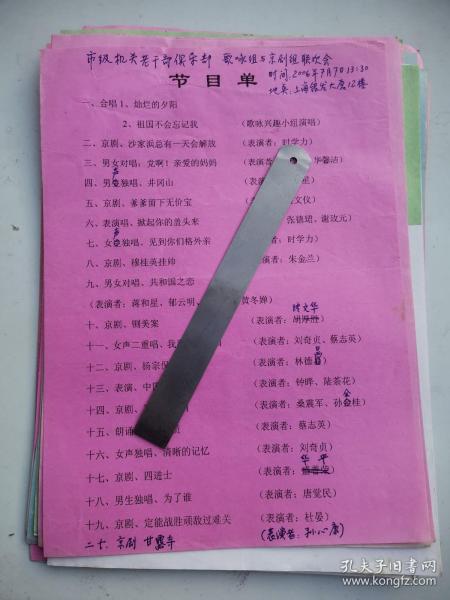 市级机关老干部俱乐部 歌咏组与京剧组联欢会
时间:2006年7月7日13:30
地点:上海银发大厦12楼
节目单
一、合唱1、灿烂的夕阳
2、祖国不会忘记我 (歌咏兴趣小组演唱)
二、京剧、沙家浜总有一天会解放 (表演者:时学力)
三、男女对唱:党啊!亲爱的妈妈 (表演者 华馨洁)
四、男声独唱、井冈山 星)
五、京剧、爹爹留下无价宝 文仪)
六、表演唱、掀起你的盖头来 张德珺、谢玫元)
七、女声独唱、见到你们格外亲 (表演者:时学力)
八、京剧、穆桂英挂帅 (表演者:朱金兰)
九、男女对唱、共和国之恋
(表演者:蒋和星、郁云明、 黄冬婵)
十、京剧、铡美案 (表演者:
十一、女声二重唱、我 (表演者:刘奇贞、蔡志英)
十二、京剧、杨宗保 (表演者:林德昌)
十三、表演、中国 (表演者:钟晔、陆茶花)
十四、京剧、 (表演者:桑震军、孙金桂)
十五、朗诵 (表演者:蔡志英)
十六、女声独唱、清晰的记忆 (表演者:刘奇贞)
十七、京剧、四进士 (表演者:华平
十八、男生独唱、为了谁 (表演者:唐觉民)
十九、京剧、定能战胜顽敌过难关 (表演者:杜晏)
二十、京剧 甘露寺 (表演者:孙心康)
孔夫子旧书网